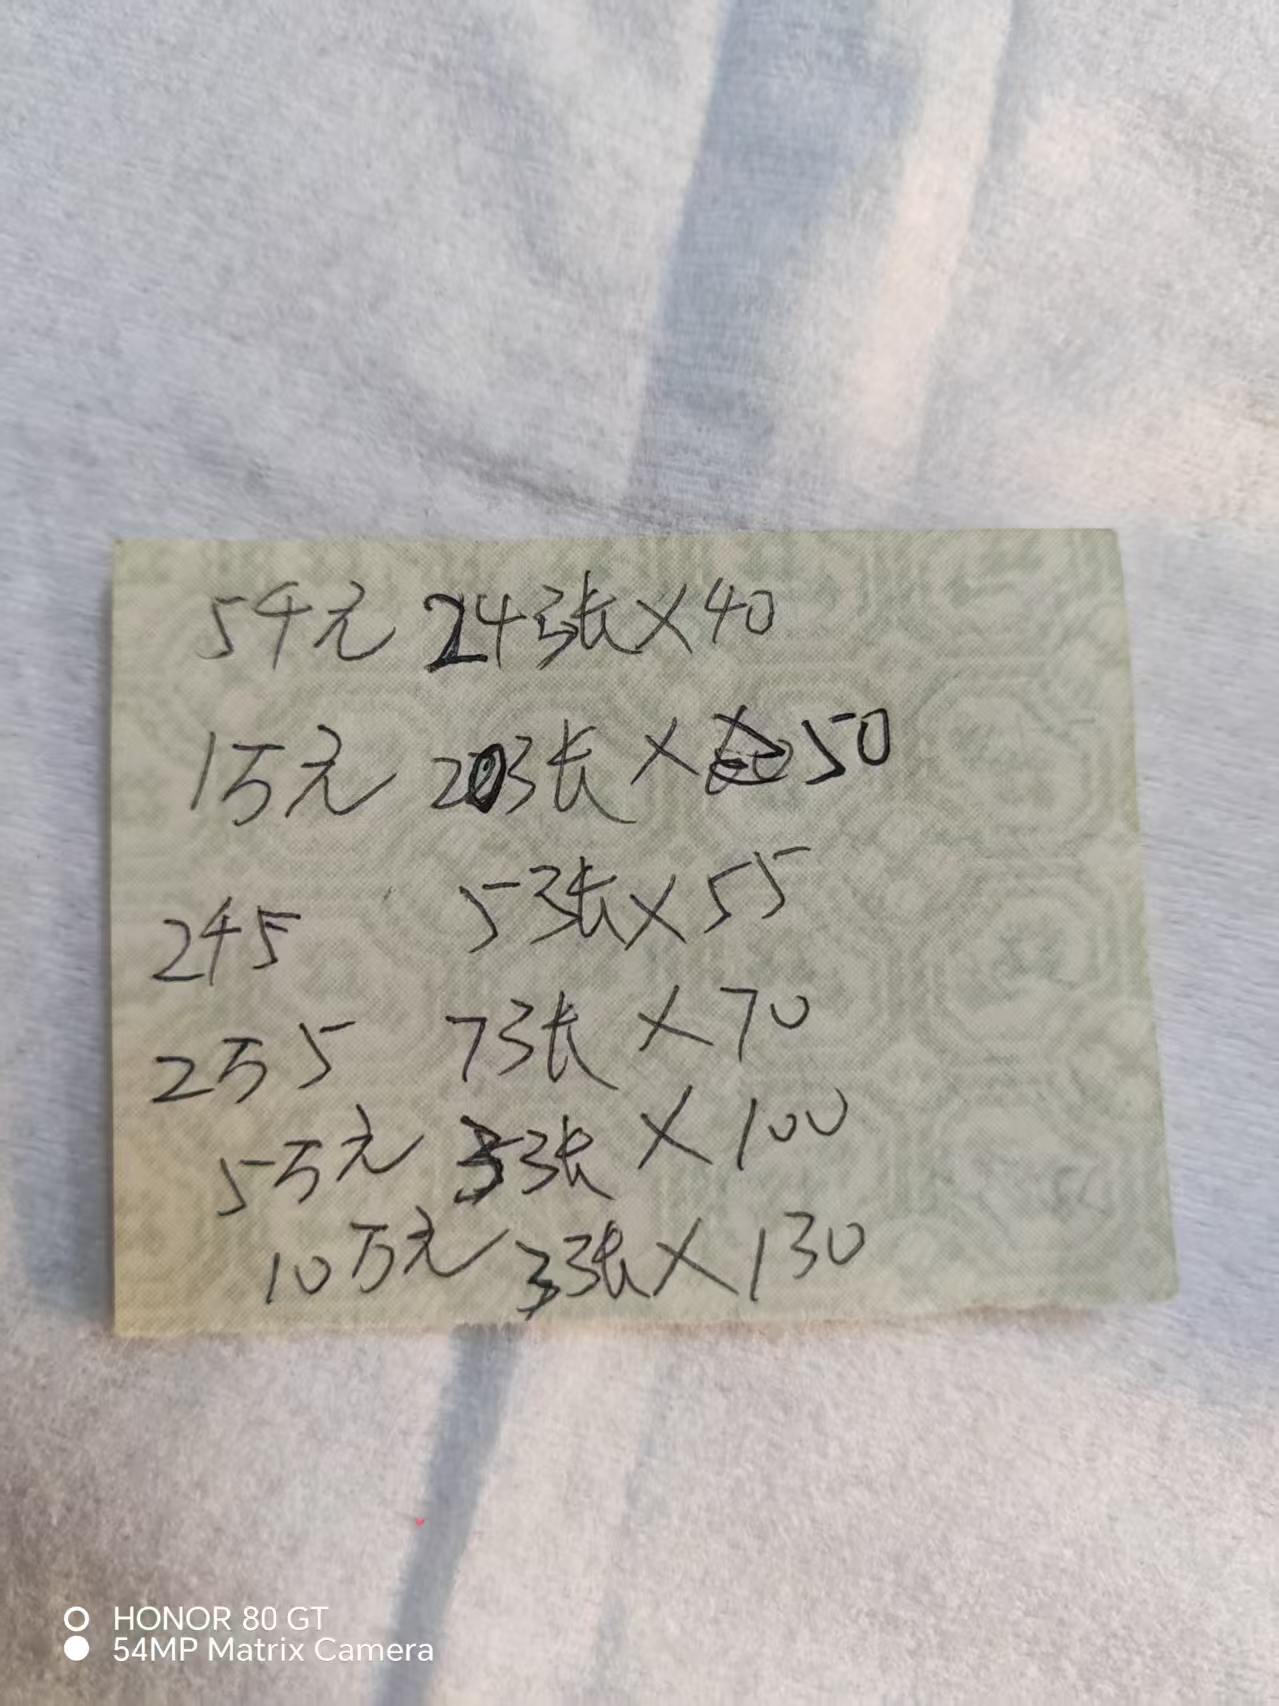 5千元 24张×40
1万元 20张×50
2千5 5张×55
2万5 7张×70
5万元 3张×100
10万元 3张×130
HONOR 80 GT
54MP Matrix Camera